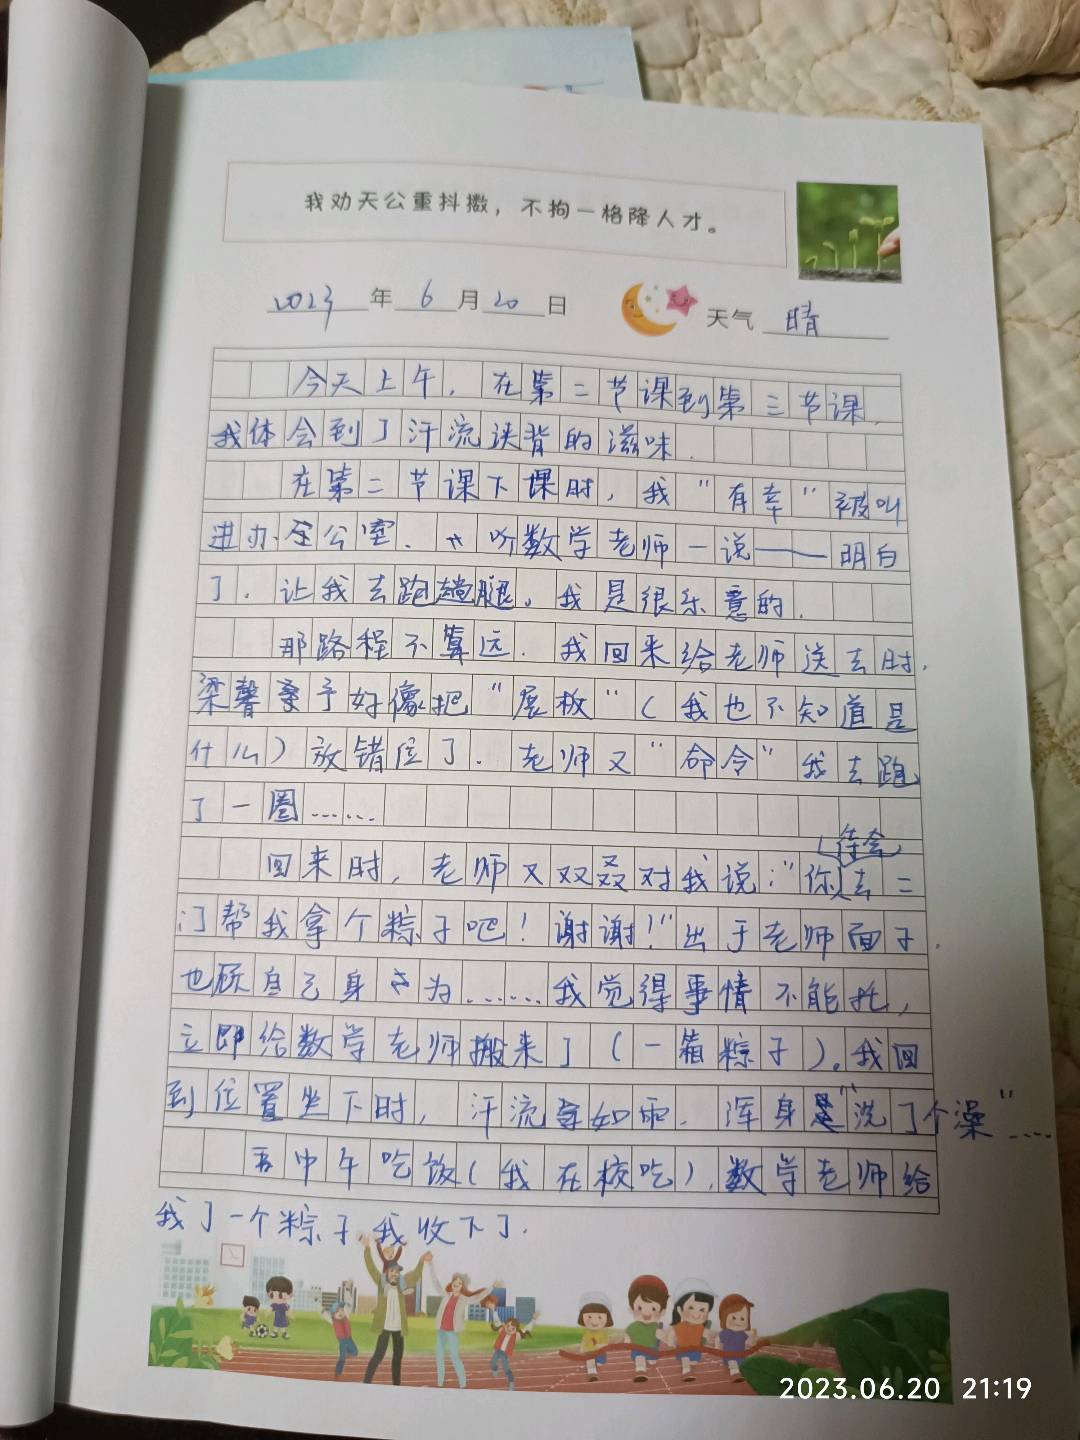 我劝天公重抖擞，不拘一格降人才。
2023年6月20日 天气 晴
今天上午，在第二节课到第三节课，
我体会到了汗流浃背的滋味．
在第二节课下课时，我“有幸”被叫
进办公室．听数学老师一说——明白
了．让我去跑趟腿。我是很乐意的．
那路程不算远．我回来给老师送去时，
梁馨予好像把“展板”（我也不知道是
什么）放错位了．老师又“命令”我去跑
了一圈……
（待会）
回来时，老师又双叒对我说：“你去二
门帮我拿个粽子吧！谢谢！”出于老师面子，
也顾自己身为……我觉得事情不能托，
立即给数学老师搬来了（一箱粽子）。我回
到位置坐下时，汗流如雨．浑身是“洗了个澡”……
中午吃饭（我在校吃），数学老师给
我了一个粽子，我收下了．
2023.06.20 21:19